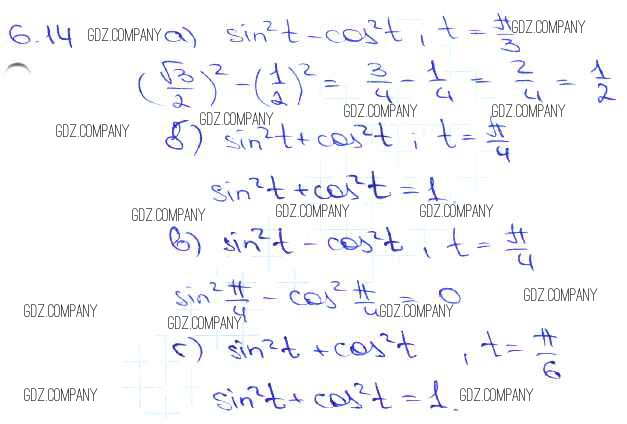 6.14 GDZ.COMPANY а) sin²t − cos²t, t = π/3 GDZ.COMPANY
(√3/2)² − (1/2)² = 3/4 − 1/4 = 2/4 = 1/2
GDZ.COMPANY GDZ.COMPANY GDZ.COMPANY GDZ.COMPANY
б) sin²t + cos²t; t = π/4
sin²t + cos²t = 1.
GDZ.COMPANY GDZ.COMPANY GDZ.COMPANY
в) sin²t − cos²t, t = π/4
sin² π/4 − cos² π/4 = 0 GDZ.COMPANY
GDZ.COMPANY GDZ.COMPANY GDZ.COMPANY
г) sin²t + cos²t, t = π/6
GDZ.COMPANY sin²t + cos²t = 1. GDZ.COMPANY